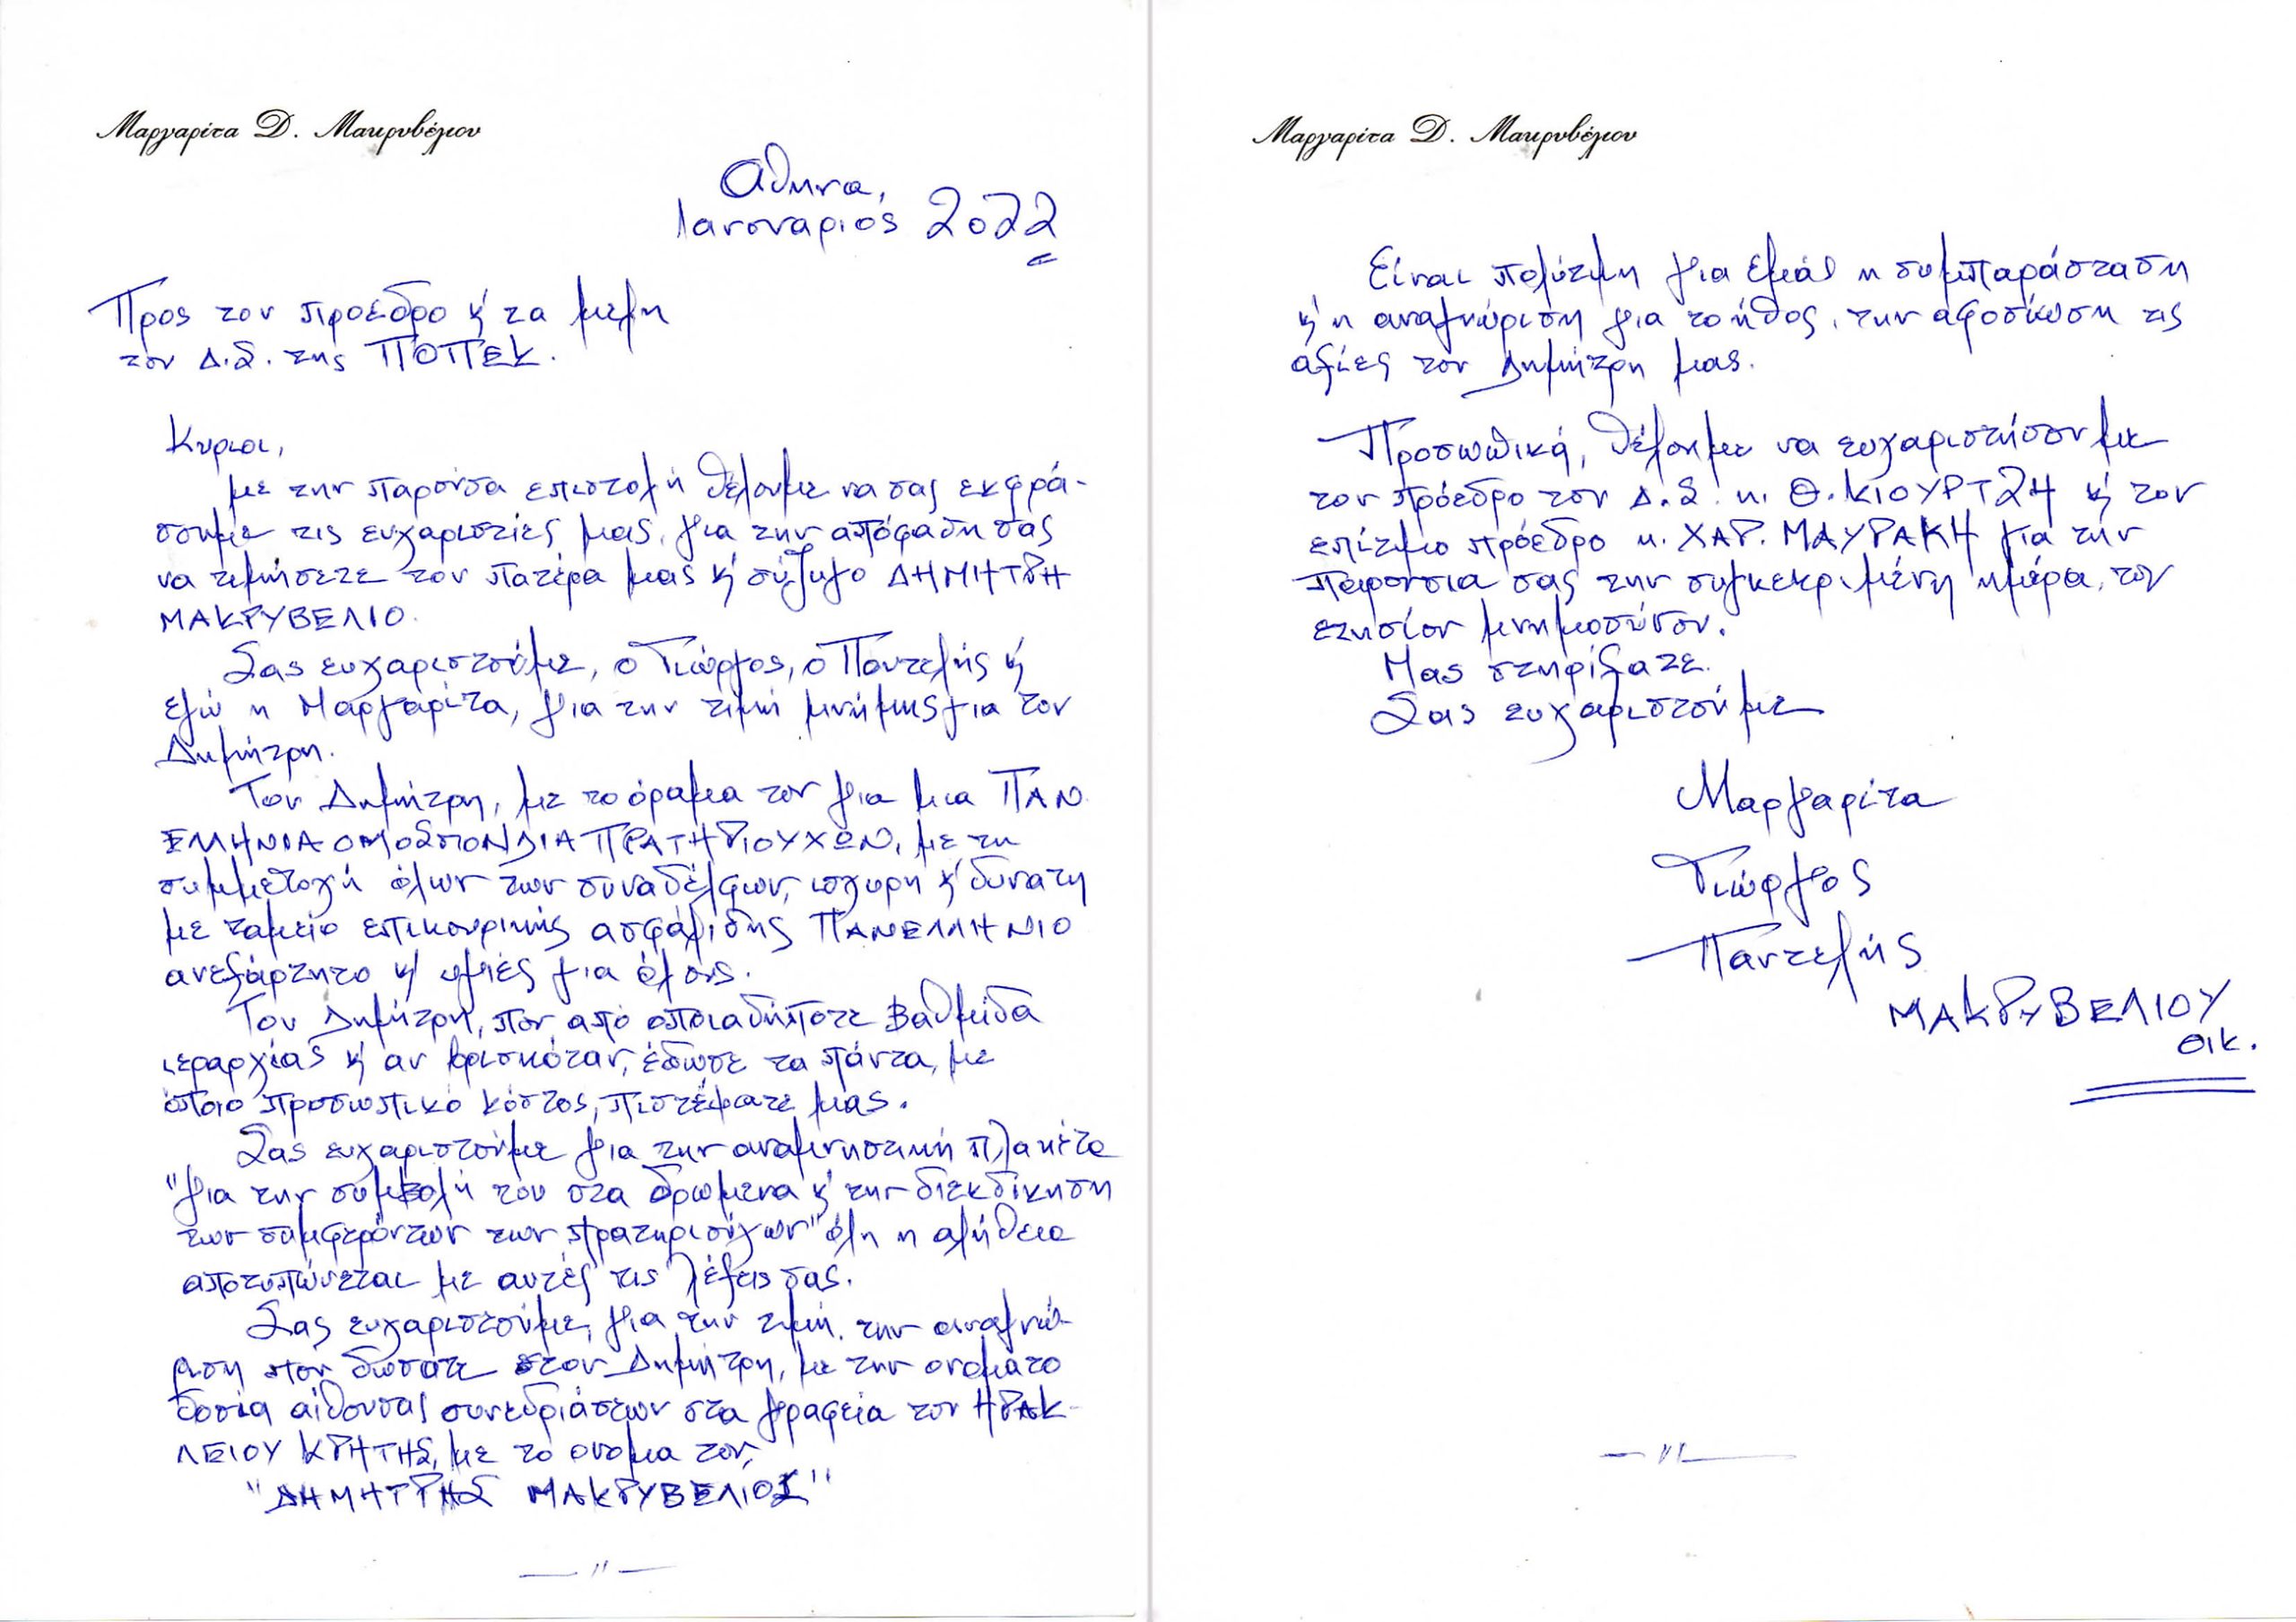 Μαργαρίτα Δ. Μακρυβέλιου
Αθηνα,
Ιανουαριός 2022
Προς τον πρόεδρο κ' τα μελη
του Δ.Σ. της ΠΟΠΕΚ.
Κυριοι,
με την παρούσα επιστολή θέλουμε να σας εκφρά-
σουμε τις ευχαριστίες μας, για την απόφαση σας
να τιμήσετε τον πατέρα μας κ' σύζυγο ΔΗΜΗΤΡΗ
ΜΑΚΡΥΒΕΛΙΟ.
Σας ευχαριστούμε, ο Γιώργος, ο Παντελής κ'
εγώ η Μαργαρίτα, για την τιμή μνήμης για τον
Δημήτρη.
Τον Δημήτρη, με το όραμα του για μια ΠΑΝ
ΕΛΛΗΝΙΑ ΟΜΟΣΠΟΝΔΙΑ ΠΡΑΤΗΡΙΟΥΧΩΝ, με τη
συμμετοχή όλων των συναδέλφων, ισχυρη κ' δυνατη
με ταμείο επικουρικής ασφάλισης ΠΑΝΕΛΛΗΝΙΟ
ανεξάρτητο κ' υγιές για όλους.
Τον Δημήτρη, που από οποιαδήποτε Βαθμίδα
ιεραρχίας κ' αν βρισκόταν, έδωσε τα πάντα, με
όποιο προσωπικο κόστος, πιστέψατε μας.
Σας ευχαριστούμε για την αναμνηστική πλακέτα
"για την συμβολή του στα δρωμενα κ' την διεκδίκηση
των συμφερόντων των πρατηριούχων" όλη η αλήθεια
αποτυπώνεται με αυτές τις λέξεις σας.
Σας ευχαριστούμε, για την τιμή, την αναγνώ-
ριση που δωσατε στον Δημήτρη, με την ονοματο
δοσία αίθουσας συνεδριάσεων στα γραφεία του ΗΡΑΚ-
ΛΕΙΟΥ ΚΡΗΤΗΣ, με το ονομα του,
"ΔΗΜΗΤΡΗΣ ΜΑΚΡΥΒΕΛΙΟΣ"
— " —
Μαργαρίτα Δ. Μακρυβέλιου
Είναι πολύτιμη για εμάς η συμπαράσταση
κ' η αναγνώριση για το ήθος, την αφοσίωση τις
αξίες του Δημήτρη μας.
Προσωπικά, θέλουμε να ευχαριστήσουμε
τον πρόεδρο του Δ.Σ. κ. Θ. ΚΙΟΥΡΤΖΗ κ' τον
επίτιμο πρόεδρο κ. ΧΑΡ. ΜΑΥΡΑΚΗ για την
παρουσια σας την συγκεκριμένη ημέρα, του
ετησίου μνημοσύνου.
Μας στηρίξατε.
Σας ευχαριστούμε
Μαργαρίτα
Γιώργος
Παντελής
ΜΑΚΡΥΒΕΛΙΟΥ
οικ.
— " —